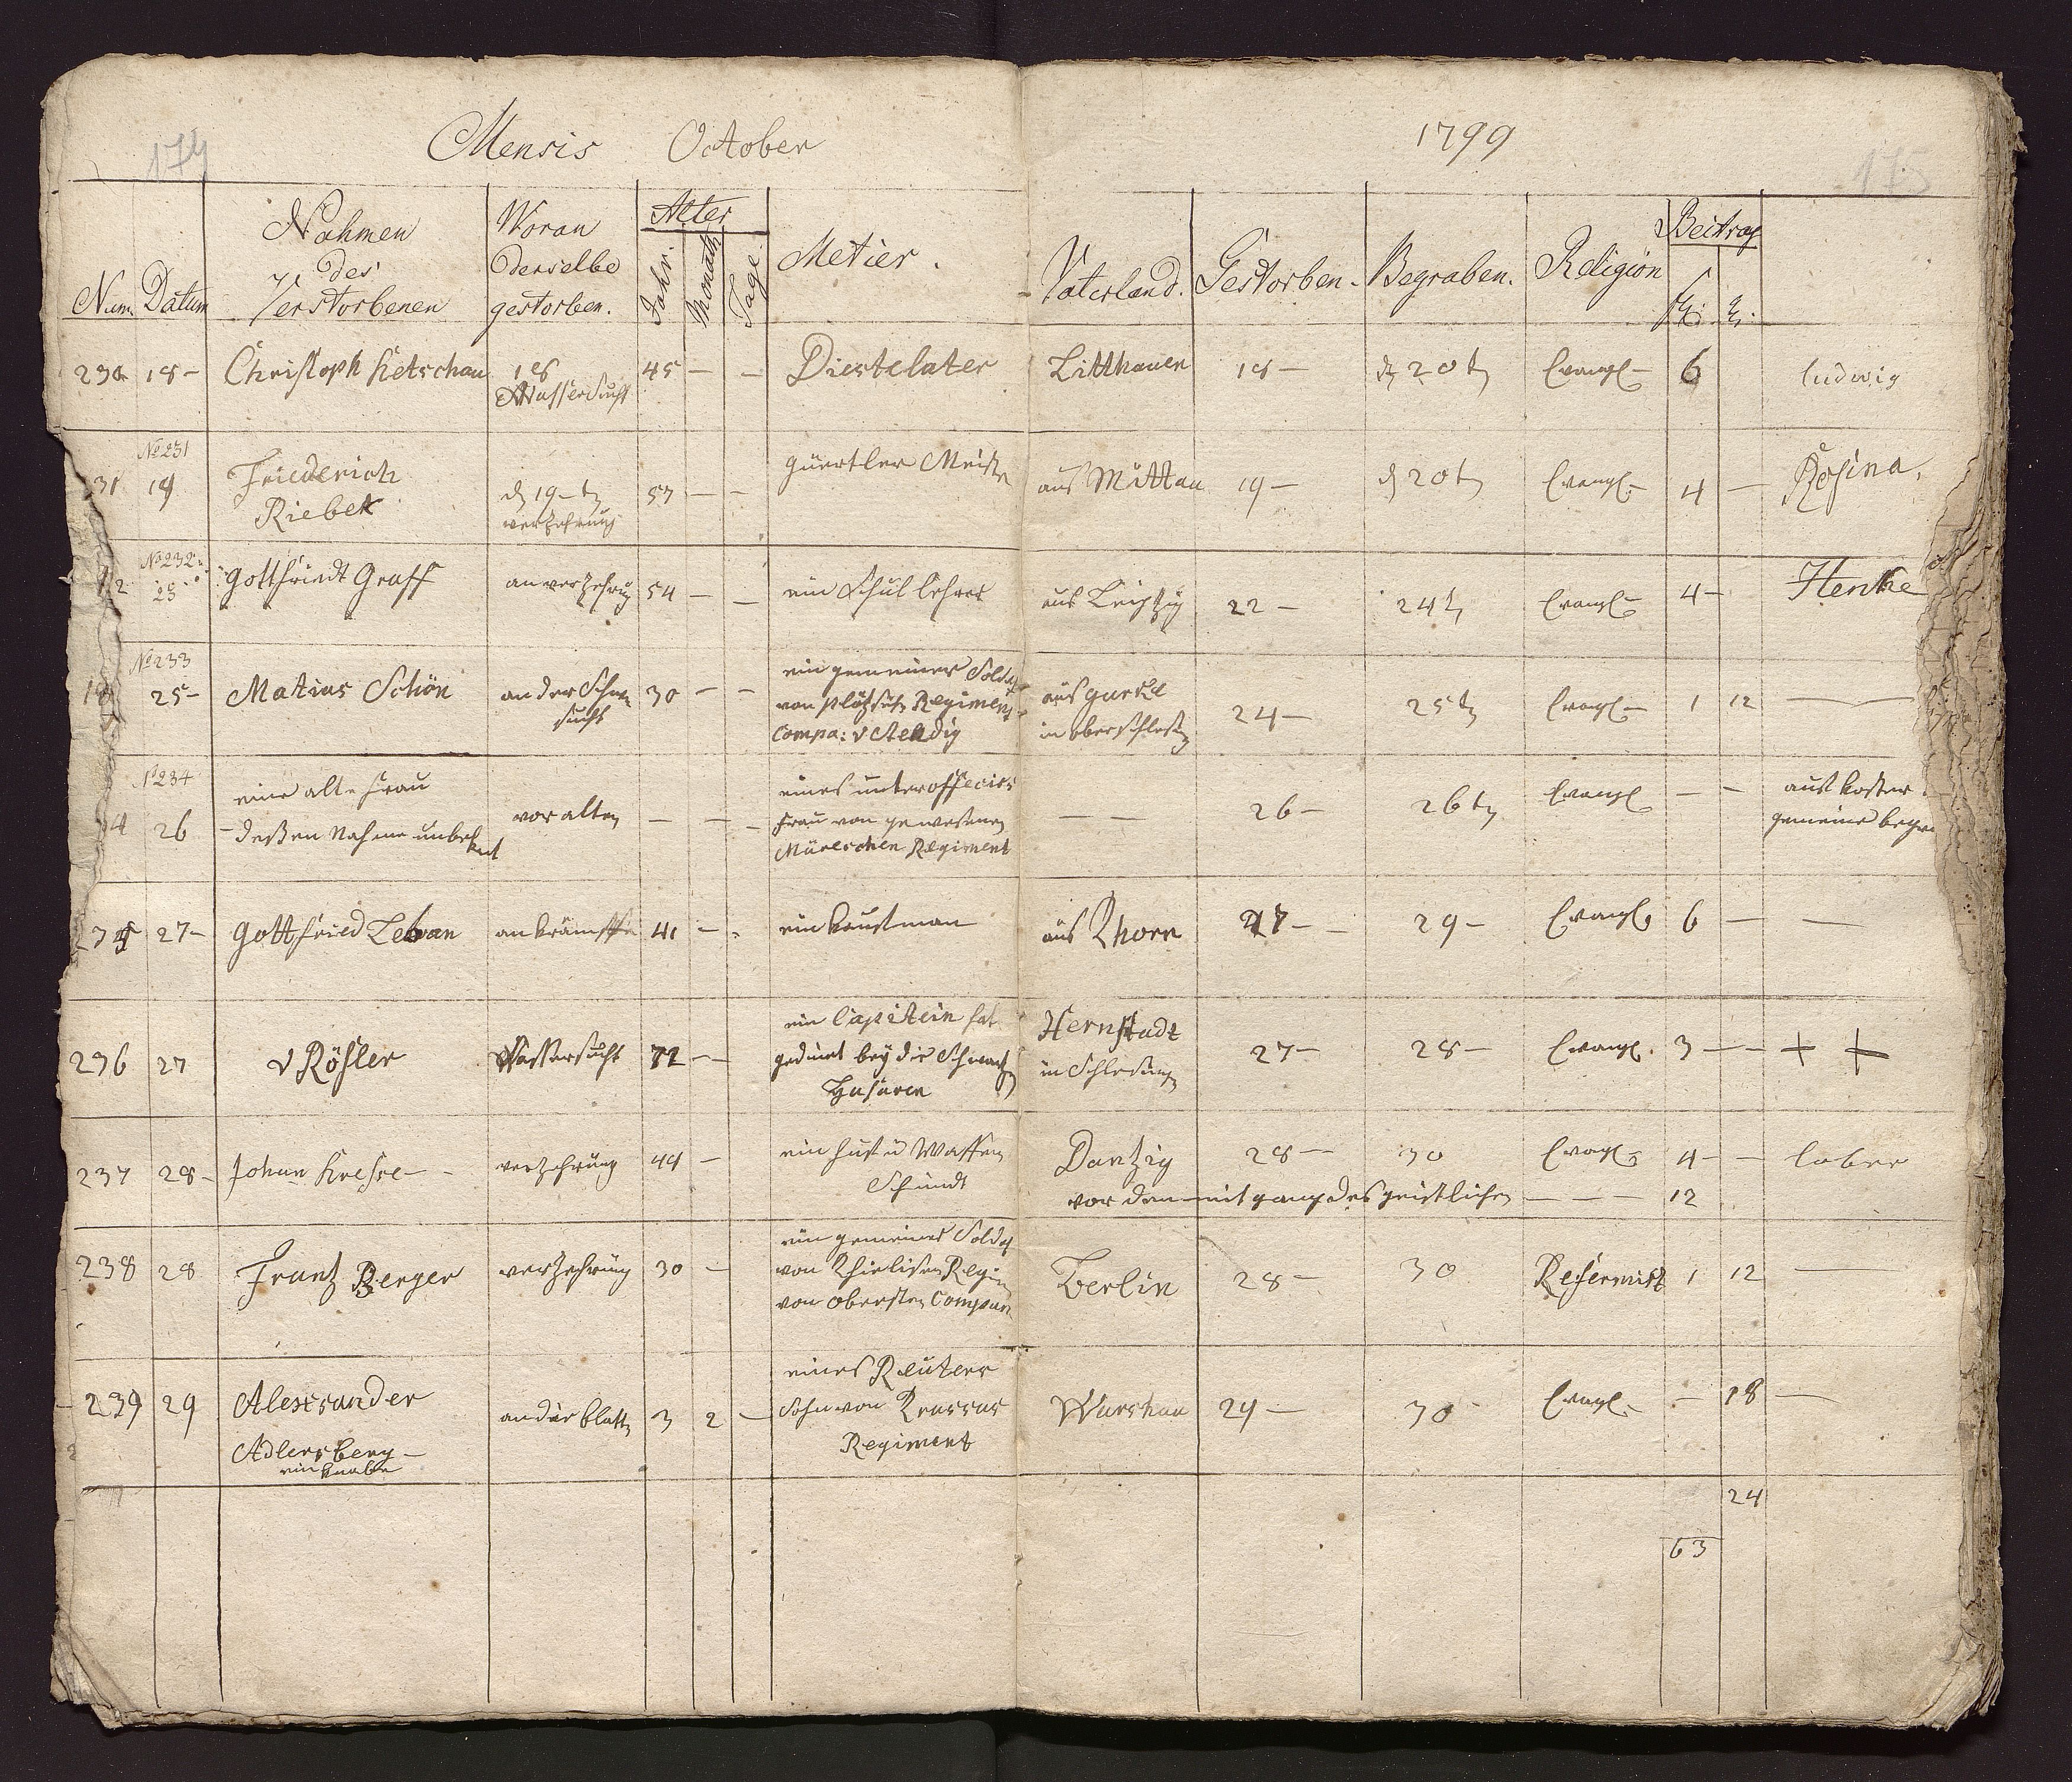 174
Mensis October
1799
175
Num. Datum Nahmen des Verstorbenen Woran derselbe gestorben. Alter Jahr. Monath Tage. Metier. Vaterland. Gestorben. Begraben. Religion Beitrag
230 18 - Christoph Ketschau 18 Wassersucht 45 - - Diestelater Litthauen 18 - d 20t Evangl 6 ludwig
No 231
31 19 Friederich Riebek d 19 - t verzehrung 57 - - güertler Meister aus Mittau 19 - d 20t Evangl. 4 - Rosina.
No 232
23 gottfriedt Graff an verzehrug 54 - - ein Schul lehrer aus Leiptzig 22 - 24t Evangl 4 - Henke
No 233
25 - Matias Schön an der Schwindsucht 30 - - ein gemeiner Soldat von Regiment Compa: v aus in oberschlesig 24 - 25t Evangl - 1 12 -
No 234
4 26 eine alte Frau deßen Nahme unbekant vor alter - - - eines unterofficiers Frau von gewesenen Regiment - - 26 - 26t Evangl - - aus kosten gemeine
235 27 - gottfried Leban an krämpffe 41 - - ein kaufman aus Thorn 27 - - 29 - Evangl 6 - -
236 27 v Rösler Wassersucht 72 - - ein Capitein hat gedient bey die Schwartzen Husaren Hernstadt in Schlesingen 27 - 28 - Evangl. 3 - - + +
237 28 - Johan Krese - - verzehrung 44 - ein huf u Waffen Schmidt Dantzig 28 - 30 Evangl 4 - - laber
vor den mit gang des geistlichen - - - 12
238 28 Frantz Berger verzehrung 30 - ein gemeiner Soldat von Regim von obersten Compani Berlin 28 - 30 Reformirt 1 12 -
239 29 Alexsander Adlersberg - ein knabe an der blattr 3 2 - eines Reuters Sohn von Regiment Warschau 29 - 30 Evangl. - 18 -
24
63